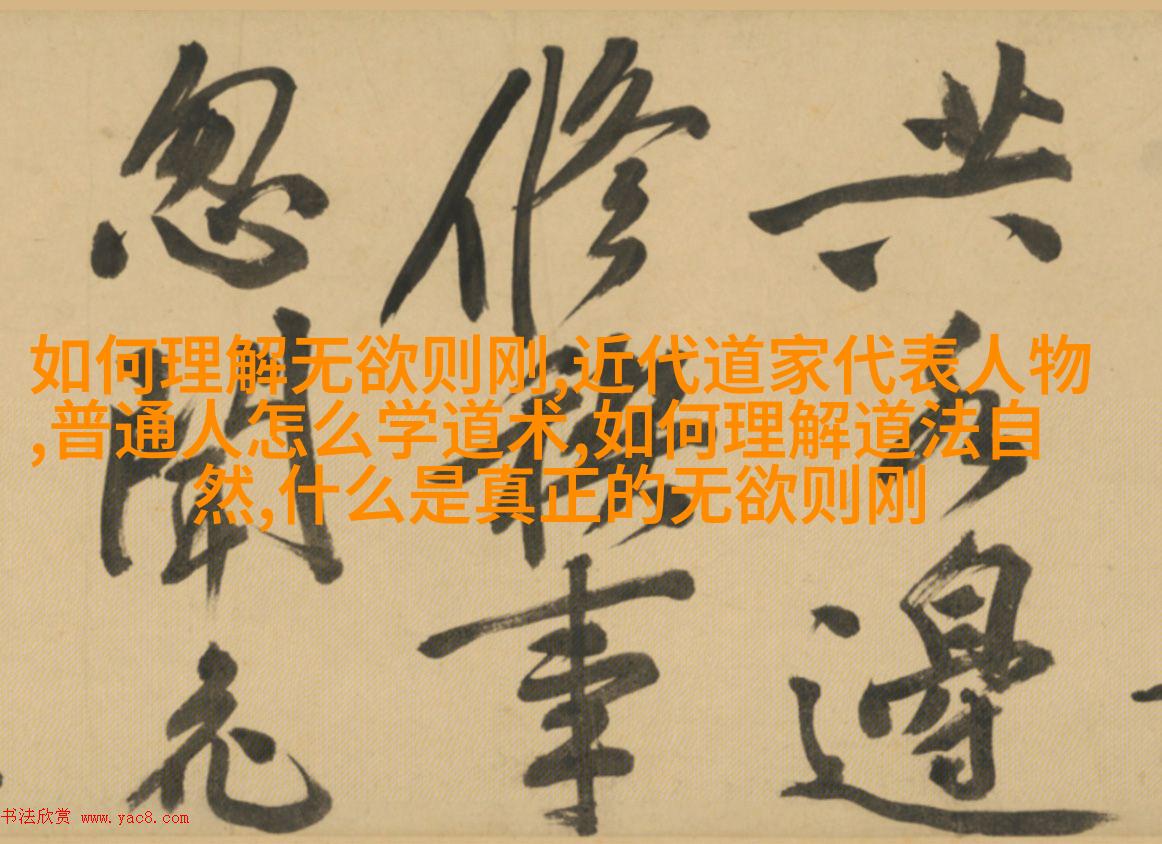 共邊
修事
忽聞
如何理解无欲则刚,近代道家代表人物
,普通人怎么学道术,如何理解道法自
然,什么是真正的无欲则刚
书法欣赏 www.yac8.com